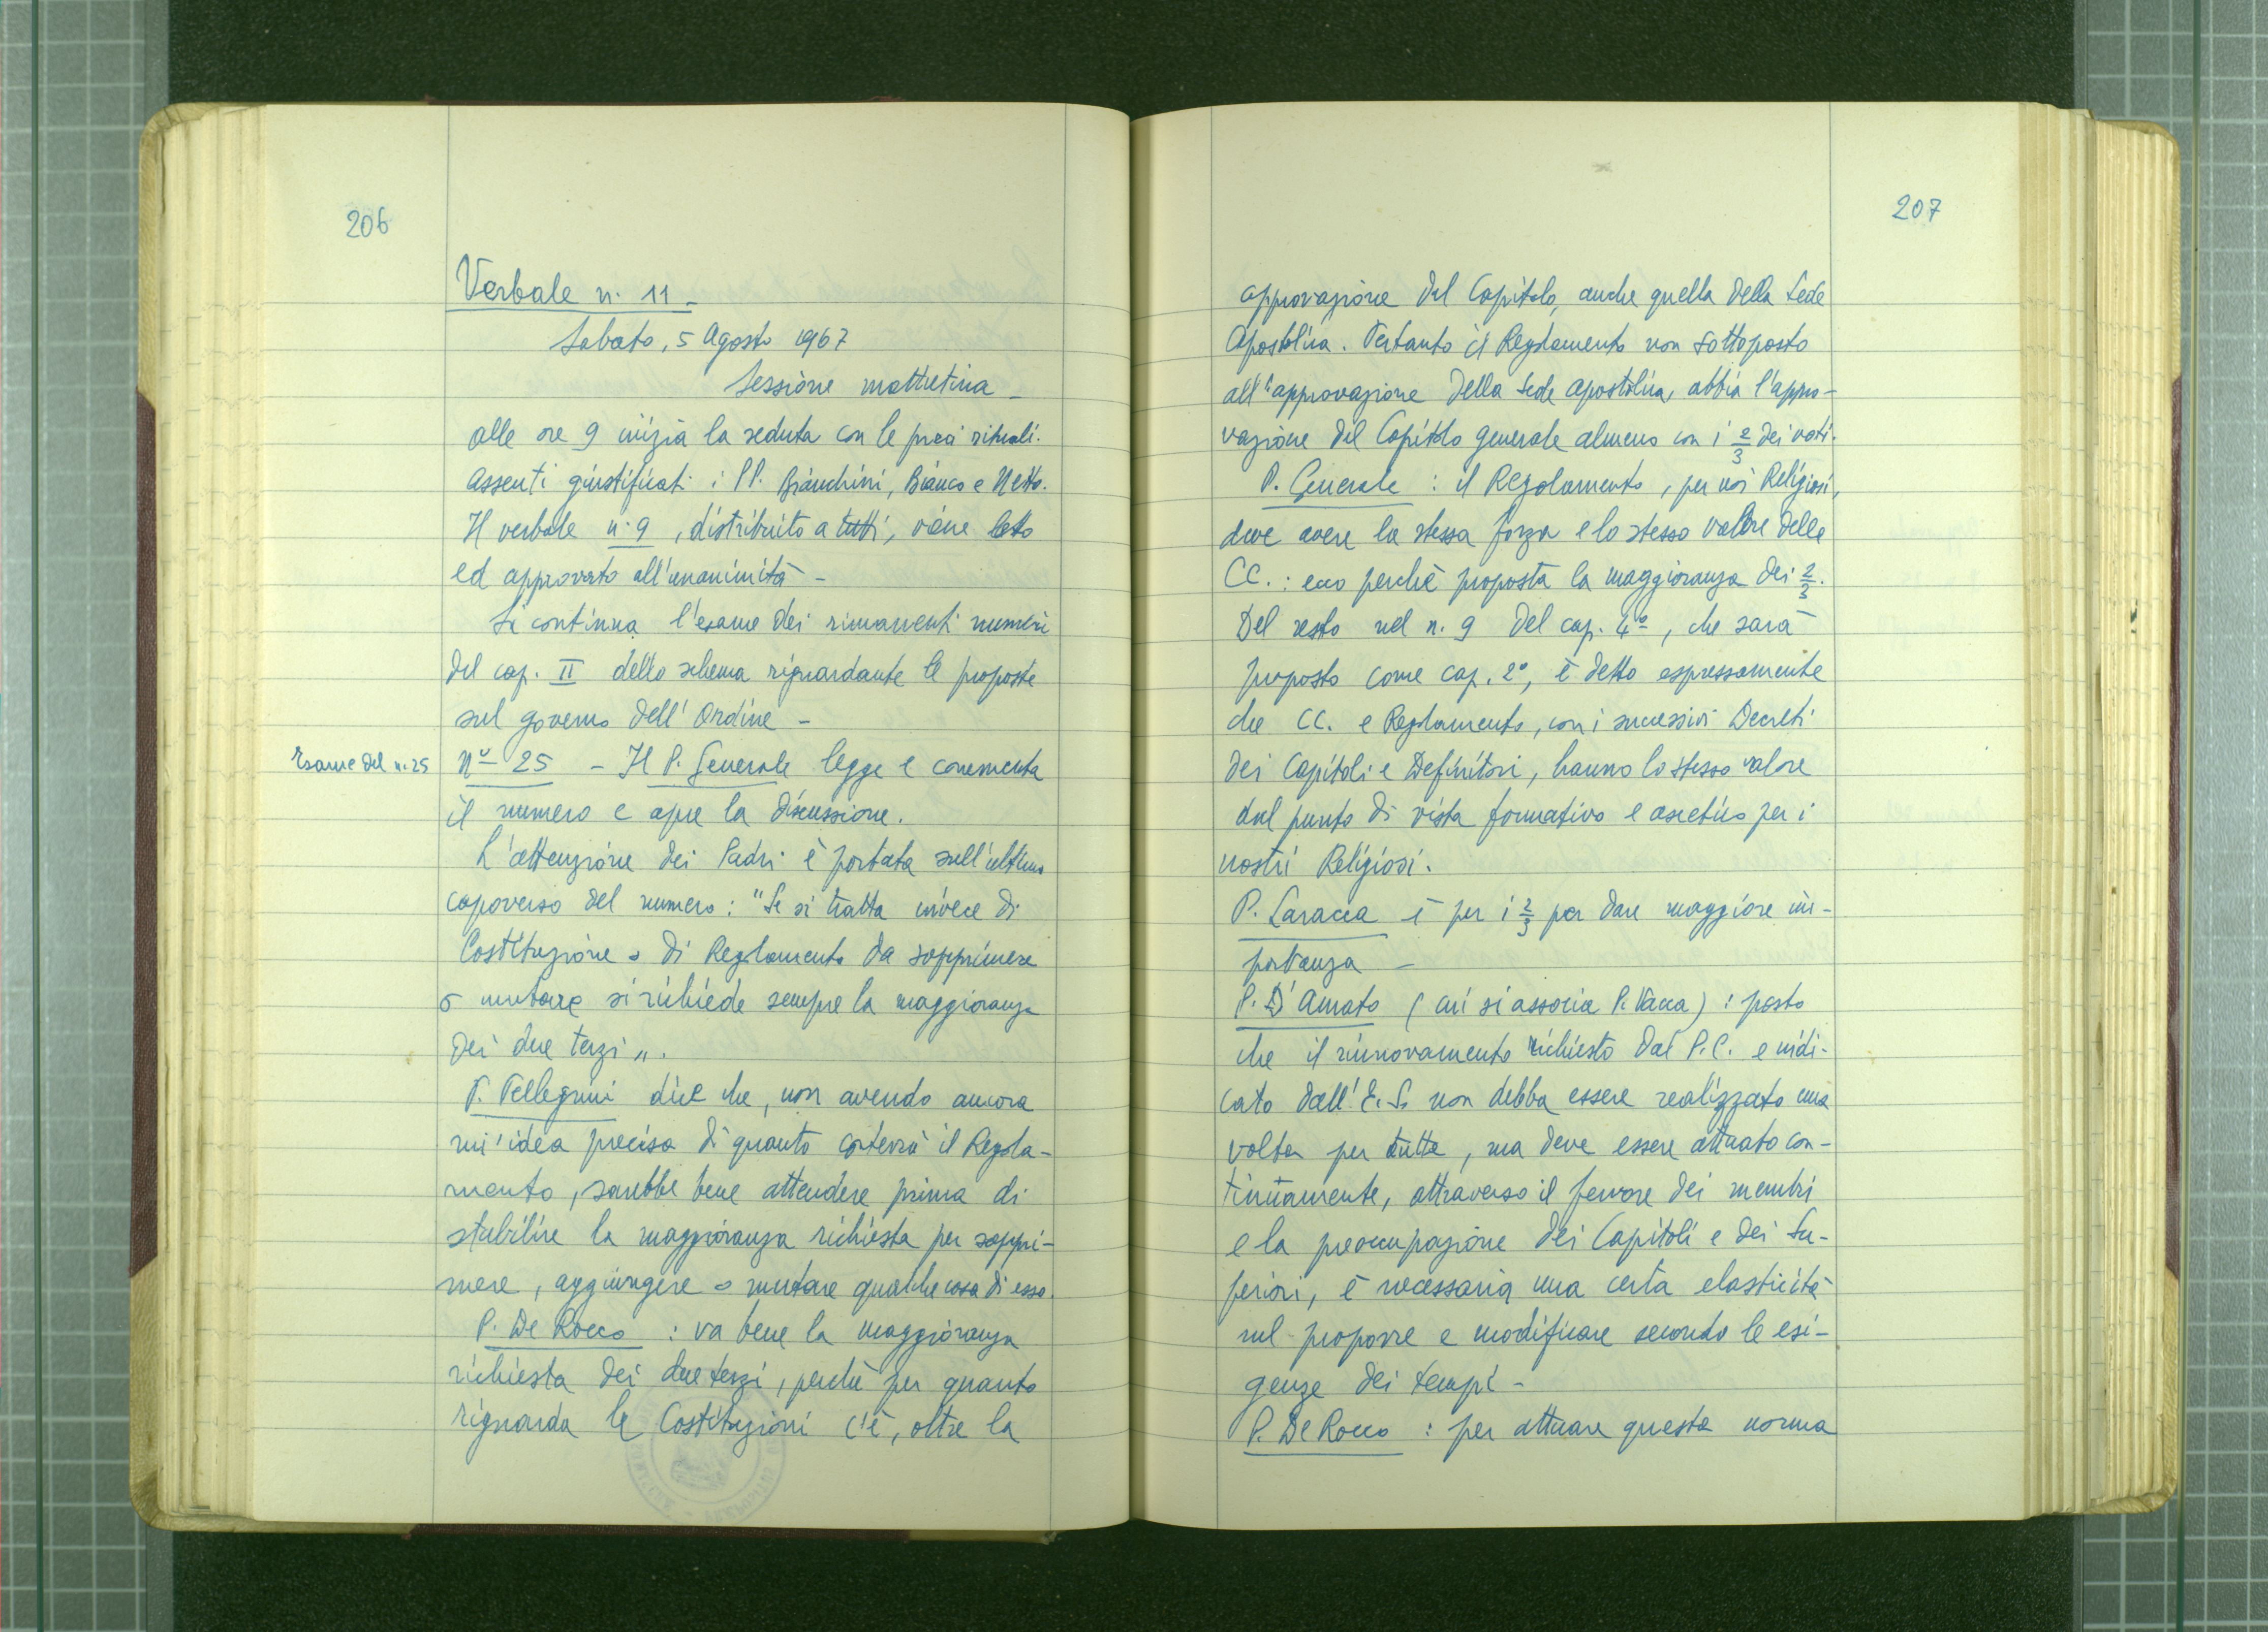 206
Verbale n. 11 -
Sabato, 5 Agosto 1967
Sessione mattutina -
alle ore 9 inizia la seduta con le preci rituali.
Assenti giustificati: i PP. Bianchini, Bianco e Netto.
Il verbale n. 9, distribuito a tutti, viene letto
ed approvato all'unanimità -
Si continua l'esame dei rimanenti numeri
del cap. II dello schema riguardante le proposte
sul governo dell'Ordine -
Esame del n. 25
Nº 25 - Il P. Generale legge e commenta
il numero e apre la discussione.
L'attenzione dei Padri è portata sull'ultimo
capoverso del numero: "Se si tratta invece di
Costituzione o di Regolamento da sopprimere
o mutare si richiede sempre la maggioranza
dei due terzi".
P. Pellegrini dice che, non avendo ancora
un'idea precisa di quanto conterrà il Regola-
mento, sarebbe bene attendere prima di
stabilire la maggioranza richiesta per soppri-
mere, aggiungere o mutare qualche cosa di esso.
P. De Rocco : va bene la maggioranza
richiesta dei due terzi, perchè per quanto
riguarda le Costituzioni c'è, oltre la
207
approvazione del Capitolo, anche quella della Sede
Apostolica. Pertanto il Regolamento non sottoposto
all'approvazione della Sede apostolica, abbia l'appro-
vazione del Capitolo generale almeno con i 2/3 dei voti.
P. Generale : il Regolamento, per noi Religiosi,
deve avere la stessa forza e lo stesso valore delle
CC.: ecco perchè proposta la maggioranza dei 2/3.
Del resto nel n. 9 del cap. 4º, che sarà
proposto come cap. 2º, è detto espressamente
che CC. e Regolamento, con i successivi Decreti
dei Capitoli e Definitori, hanno lo stesso valore
dal punto di vista formativo e ascetico per i
nostri Religiosi.
P. Laracca è per i 2/3 per dare maggiore im-
portanza -
P. D'Amato (cui si associa P. Vacca) : posto
che il rinnovamento richiesto dal P.C. e indi-
cato dall'E.S. non debba essere realizzato una
volta per tutte, ma deve essere attuato con-
tinuamente, attraverso il fervore dei membri
e la preoccupazione dei Capitoli e dei Su-
periori, è necessaria una certa elasticità
nel proporre e modificare secondo le esi-
genze dei tempi -
P. De Rocco : per attuare questa norma